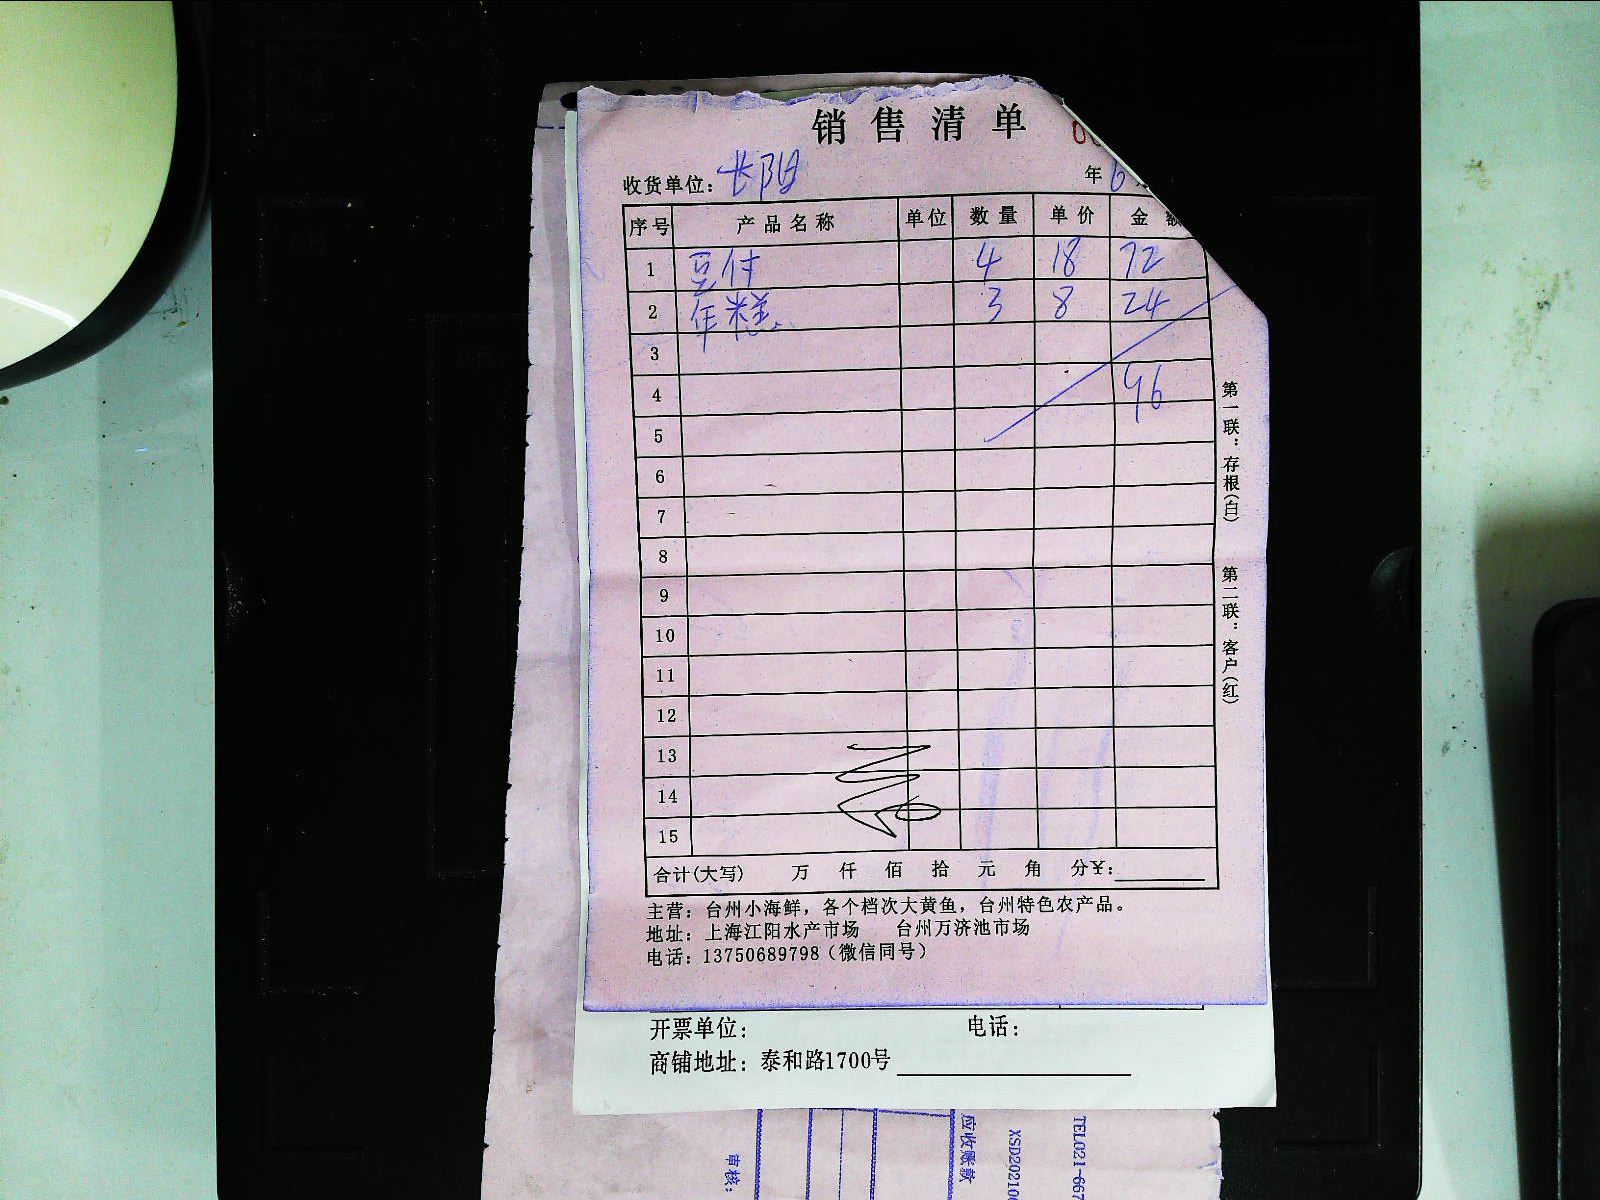 销售清单
收货单位：长阳 年6
序号 产品名称 单位 数量 单价 金额
1 豆付 4 18 72
2 年糕 3 8 24
3
4 96
5
6
7
8
9
10
11
12
13
14
15
合计(大写) 万 仟 佰 拾 元 角 分¥：
主营：台州小海鲜，各个档次大黄鱼，台州特色农产品。
地址：上海江阳水产市场 台州万济池市场
电话：13750689798（微信同号）
第一联：存根(白) 第二联：客户(红)
开票单位： 电话：
商铺地址：泰和路1700号
TEL021-667
XSD20210
应收账款
审核：